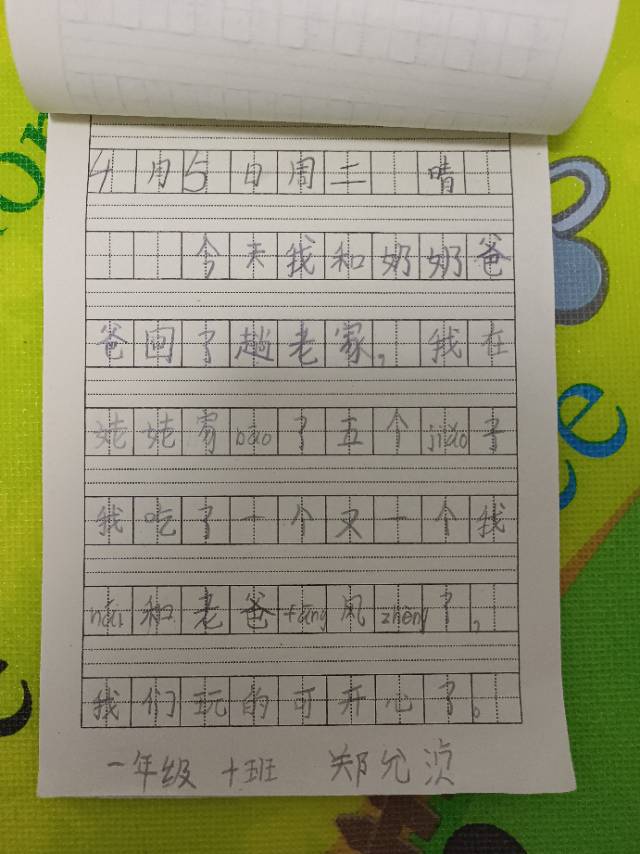 4月5日周二 晴
今天我和奶奶爸
爸回了趟老家，我在
姥姥家bāo了五个jiǎo子
我吃了一个又一个我
hái和老爸fàng风zhēng了，
我们玩的可开心了。
一年级 十班 郑允浈